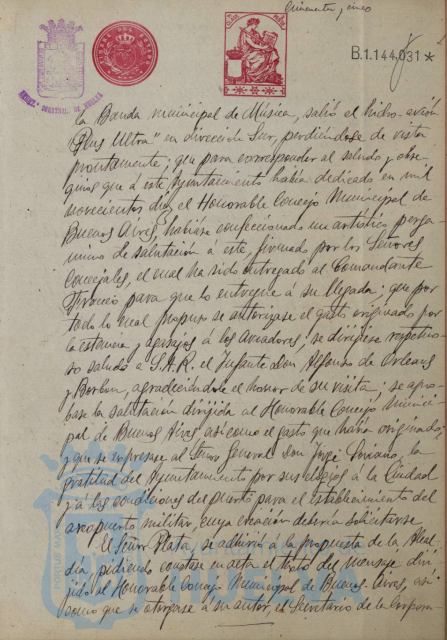 Cincuenta y cinco
B.1.144,031 *
la Banda municipal de Música, salió el hidro-avión
"Plus Ultra" en dirección Sur, perdiéndose de vista
prontamente; que para corresponder al saludo y obse
quios que á este Ayuntamiento había dedicado en mil
novecientos diez el Honorable Concejo Municipal de
Buenos Aires, habíase confeccionado un artístico perga
mino de salutación á este, firmado por los Señores
Concejales, el cual ha sido entregado al Comandante
Franco para que lo entregue á su llegada; que por
todo lo cual propuso se autorizase el gasto originado por
la estancia y agasajos á los Aviadores; se dirigiese respetuo
so saludo á S.A.R. el Infante Don Alfonso de Orleans
y Borbón, agradeciéndole el honor de su visita; se apro
base la salutación dirijida al Honorable Concejo Munici
pal de Buenos Aires, así como el gasto que había originado;
y que se expresase al Señor General Don Jorge Soriano, la
gratitud del Ayuntamiento por sus elogios á la Ciudad
y á las condiciones del puerto para el establecimiento del
aeropuerto militar, cuya creación debería solicitarse.
El Señor Plata, se adhirió á la propuesta de la Alcal
día pidiendo constase en acta el texto del mensaje diri
jido al Honorable Concejo Municipal de Buenos Aires, así
como que se otorgase á su autor, el Secretario de la Corpora